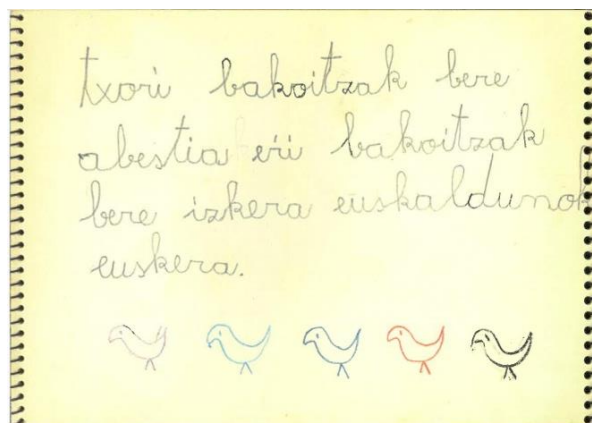 txori bakoitzak bere
abestia eŕi bakoitzak
bere izkera euskaldunok
euskera.